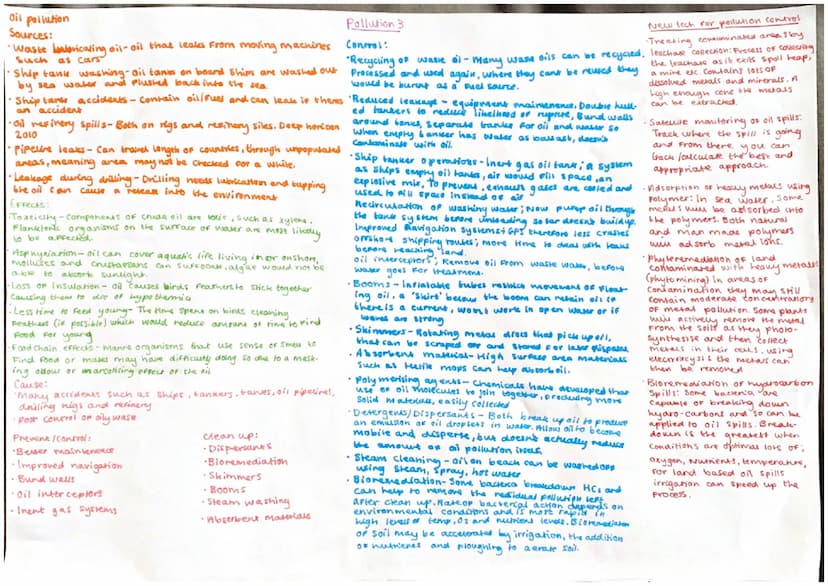 Oil pollution
Sources:
• Waste lubricating oil - oil that leaks from moving machines
such as cars
• Ship tank washing - oil tanks on board ships are washed out
by sea water and flushed back into the sea
• Ship tanker accidents - contain oil/fuel and can leak if theres
an accident
• Oil refinery spills - Both on rigs and refinery sites. Deep horizon
2010
• Pipeline leaks - Can travel length of countries, through unpopulated
areas, meaning area may not be checked for a while.
• Leakage during drilling - Drilling needs lubrication and tapping
the oil can cause a release into the environment
Effects:
Toxicity - Components of crude oil are toxic, such as xylene.
Planktonic organisms on the surface of water are most likely
to be affected.
• Asphyxiation - oil can cover aquatic life living in or on shore,
molluscs and crustaceans can suffocate, algae would not be
able to absorb sunlight.
• Loss of insulation - oil causes birds feathers to stick together
causing them to die of hypothermia
• Less time to feed young - The time spent on birds cleaning
feathers (if possible) which would reduce amount of time to find
food for young
• Food chain effects - Marine organisms that use sense of smell to
find food or mates may have difficulty doing so due to a mask-
ing odour or narcotising effect of the oil
Cause:
• Many accidents such as ships, tankers, tanks, oil pipelines,
drilling rigs and refinery
• Poor control of oily waste
Prevent/Control:
• Better maintenence
• Improved navigation
• Bund walls
• Oil interceptors
• Inert gas systems
Clean up:
• Dispersants
• Bioremediation
• Skimmers
• Booms
• Steam washing
• Absorbent materials
Pollution 3
Control:
• Recycling of waste oil - Many waste oils can be recycled,
Processed and used again, where they cant be reused they
would be burnt as a fuel source.
• Reduced leakage - equipment maintenence. Double hull-
ed tankers to reduce likelihood of rupture, Bund walls
around tanks, separate tanks for oil and water so
when empty tanker has water as ballast, doesn't
contaminate with oil.
• Ship tanker operations - Inert gas oil tank, in a system
as ships empty oil tanks, air would fill space, an
explosive risk, To prevent, exhaust gases are cooled and
used to fill space instead of air
Recirculation of washing water; Now pump oil through
the tank system before unloading so tar doesn't build up
Improved Navigation systems + GPS therefore less crashes
offshore shipping routes; more time to deal with leaks
before reaching land.
oil interceptors; Remove oil from waste water, before
water goes for treatment.
• Booms - Inflatable tubes restrict movement of float-
ing oil, a 'skirt' below the boom can retain oil if
there is a current, won't work in open water or if
waves are strong
• Skimmers - Rotating metal discs that pick up oil,
that can be scraped off and stored for later disposal
• Absorbent material - High surface area materials
such as textile mops can help absorb oil.
• Polymerising agents - Chemicals have developed that
use of oil molecules to join together, producing more
solid materials, easily collected
• Detergents/Dispersants - Both break up oil to produce
an emulsion of oil droplets in water. Allow oil to become
mobile and disperse, but doesn't actually reduce
the amount of oil pollution itself.
• Steam cleaning - oil on beach can be washed off
using steam, spray, hot water
• Bioremediation - Some bacteria breakdown HCs and
can help to remove the residual pollution left
after clean up. Rate of bacterial action depends on
environmental conditions and is most rapid in
high levels of temp, O2 and nutrient levels. Bioremediation
of soil may be accelerated by irrigation, the addition
of nutrients and ploughing to aerate soil.
New tech for pollution control
• Treating contaminated areas by
leachate collection: Process of collecting
the leachate as it exits spoil heap,
a mine etc. Contains lots of
dissolved metals and minerals. A
high enough conc the metals
can be extracted.
• Satellite monitoring of oil spills:
Track where the spill is going
and from there you can
calculate the best and
appropriate approach.
• Adsorption of heavy metals using
polymer: In sea water, some
metals will be adsorbed into
the polymers. Both natural
and man made polymers
will adsorb metal ions.
• Phytoremediation of land
contaminated with heavy metals:
(phytomining) in areas of
contamination they may still
contain moderate concentrations
of metal pollution. Some plants
will actively remove the metal
from the soils as they photo-
synthesise and then collect
metals in their cells. using
electrolysis the metals can
then be removed
• Bioremediation of hydrocarbon
spills: some bacteria are
capable of breaking down
hydro-carbons and so can be
applied to oil spills. Break-
down is the greatest when
conditions are optimal lots of:
oxygen, nutrients, temperature,
for land based oil spills
irrigation can speed up the
process.